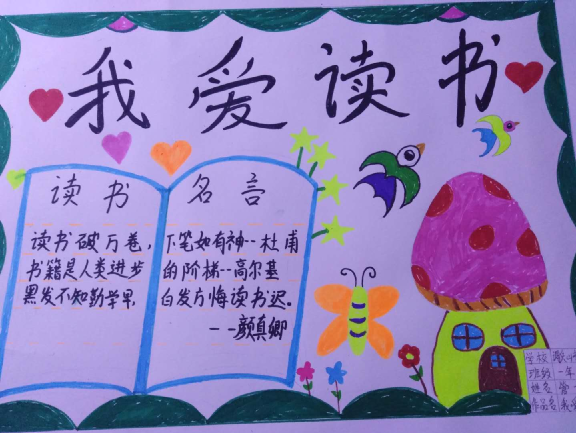 我爱读书
读书名言
读书破万卷，下笔如有神--杜甫
书籍是人类进步的阶梯--高尔基
黑发不知勤学早，白发方悔读书迟。
--颜真卿
学校
班级 一年
姓名 曾
作品名 我